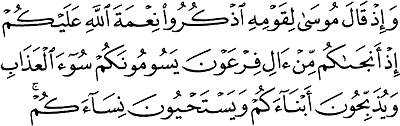 وَإِذْ قَالَ مُوسَىٰ لِقَوْمِهِ ٱذْكُرُوا۟ نِعْمَةَ ٱللَّهِ عَلَيْكُمْ
إِذْ أَنجَىٰكُم مِّنْ ءَالِ فِرْعَوْنَ يَسُومُونَكُمْ سُوٓءَ ٱلْعَذَابِ
وَيُذَبِّحُونَ أَبْنَآءَكُمْ وَيَسْتَحْيُونَ نِسَآءَكُمْ ۚ